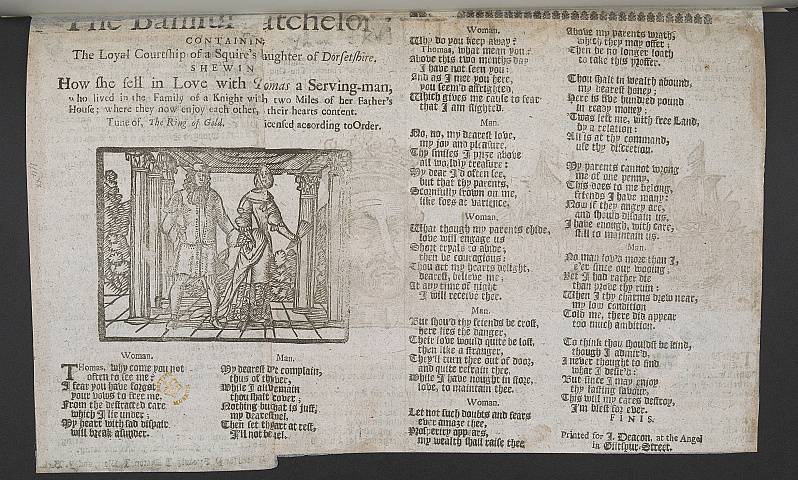 The Bashful Batchelor:
CONTAININ;
The Loyal Courtship of a Squire's aughter of Dorsetshire,
SHEWIN
How she fell in Love with Tomas a Serving-man,
who lived in the Family of a Knight with two Miles of her Father's
House; where they now enjoy each other, their hearts content.
Tune of, The Ring of Gold. icensed according to Order.
Woman.
Thomas, why come you not
often to see me?
I fear you have forgot
your vows to free me,
From the destracted care
which I lie under;
My heart with sad dispair
will break asunder.
Man.
My dearest d've complain,
thus of thyver,
While I alive main
thou shalt cover;
Nothing but at is just,
my dearest
Then set thy art at rest,
I'll not be
Woman.
Why do you keep away?
Thomas, what mean you?
above this two months day
I have not seen you:
And as I met you here,
you seem'd affrighted,
Which gives me cause to fear
that I am slighted.
Man.
No, no, my dearest love,
my joy and pleasure,
Thy smiles I prize above
all worldly treasure:
My dear I'd often see,
but that thy parents,
Scornfully frown on me,
like foes at varience.
Woman.
What though my parents chide,
love will engage us
Short tryals to abide;
then be couragious:
Thou art my hearts delight,
dearest, believe me;
At any time of night
I will receive thee.
Man.
But shou'd thy friends be crost,
here lies the danger,
Their love would quite be lost,
then like a stranger,
They'll turn thee out of door,
and quite refrain thee,
While I have nought in store,
love, to maintain thee.
Woman.
Let not such doubts and fears
ever amaze thee,
Prosperity appears,
my wealth shall raise thee
Above my parents wrath,
which they may offer;
Then be no longer loath
to take this proffer.
Thou shalt in wealth abound,
my dearest honey;
Here is five hundred pound
in ready money;
'Twas left me, with free Land,
by a relation:
All is at thy command,
use thy discretion.
My parents cannot wrong
me of one penny,
This does to me belong,
friends I have many:
Now if they angry are,
and should disdain us,
I have enough, with care,
still to maintain us.
Man.
No man lov'd more than I,
e'er since our wooing;
Yet I had rather die
than prove thy ruin:
When I thy charms drew near,
my low condition
Told me, there did appear
too much ambition.
To think thou shouldst be kind,
though I admir'd,
I never thought to find
what I desir'd:
But since I may enjoy
thy lasting favour,
This will my cares destroy,
I'm blest for ever.
FINIS.
Printed for J. Deacon, at the Angel
in Giltspur-Street.